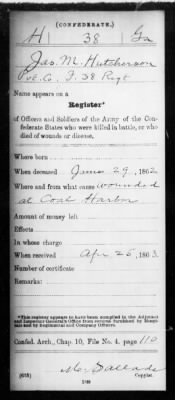 (CONFEDERATE.)
H 38 Ga
Jas. M. Hutcherson
Pvt. Co. F. 38 Regt
Name appears on a
Register*
of Officers and Soldiers of the Army of the Con-
federate States who were killed in battle, or who
died of wounds or disease.
Where born
When deceased June 29, 1862
Where and from what cause wounded
at Coal Harbor
Amount of money left
Effects
In whose charge
When received Apr 25, 1863.
Number of certificate
Remarks:
*This register appears to have been compiled in the Adjutant
and Inspector General's Office from returns furnished by Hospi-
tals and by Regimental and Company Officers.
Confed. Arch., Chap. 10, File No. 4, page 110
(635)
Copyist.